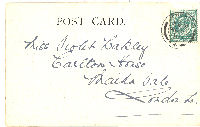 POST CARD.
Miss Violet Oakley
Carlton House
Maida Vale
London